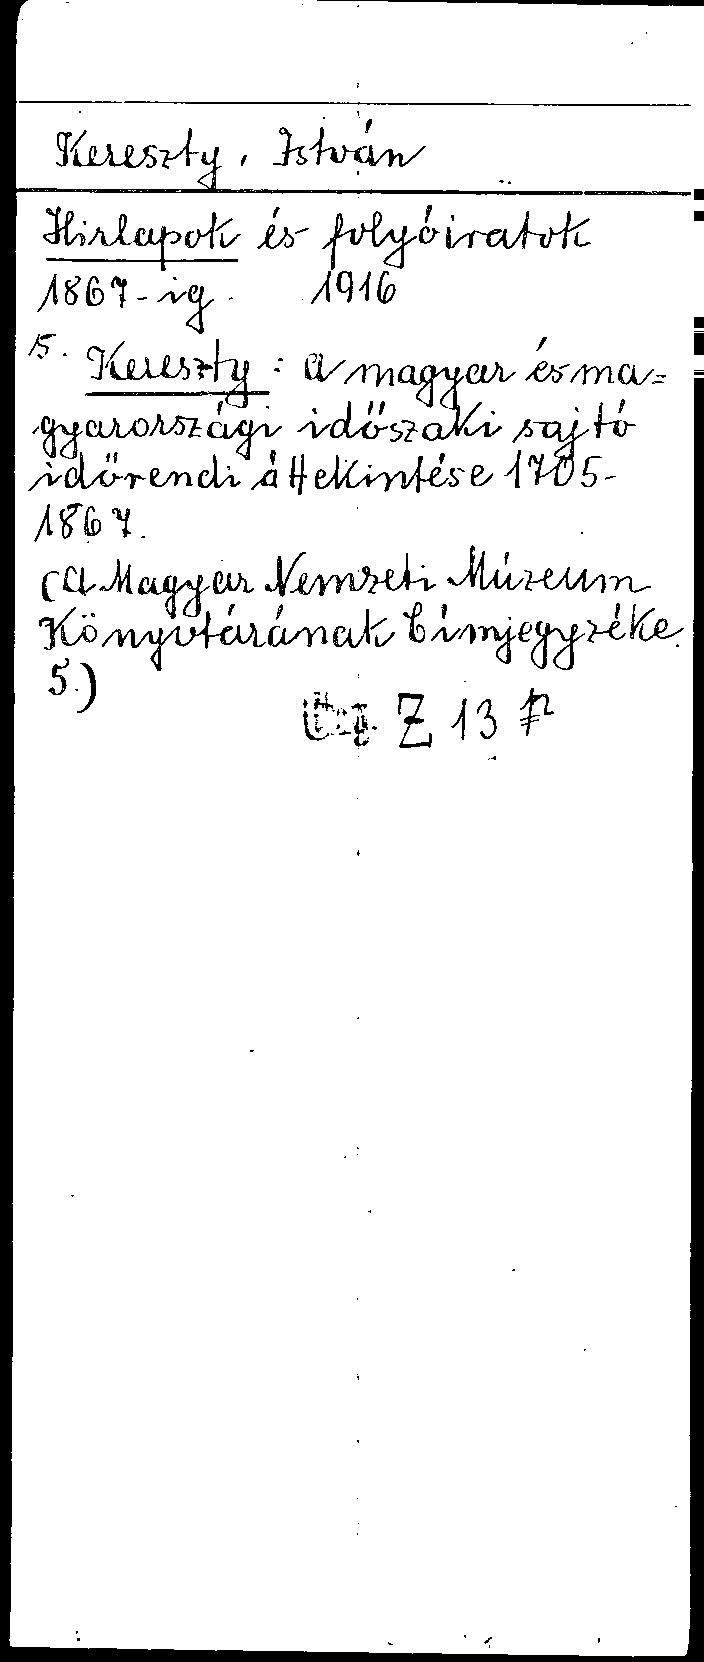 Kereszty, István
Hirlapok és folyóiratok
1867-ig. 1916
5. Kereszty: A magyar és ma=
gyarországi időszaki sajtó
időrendi áttekintése 1705-
1867.
(A Magyar Nemzeti Múzeum
Könyvtárának Címjegyzéke.
5.)
Z 13